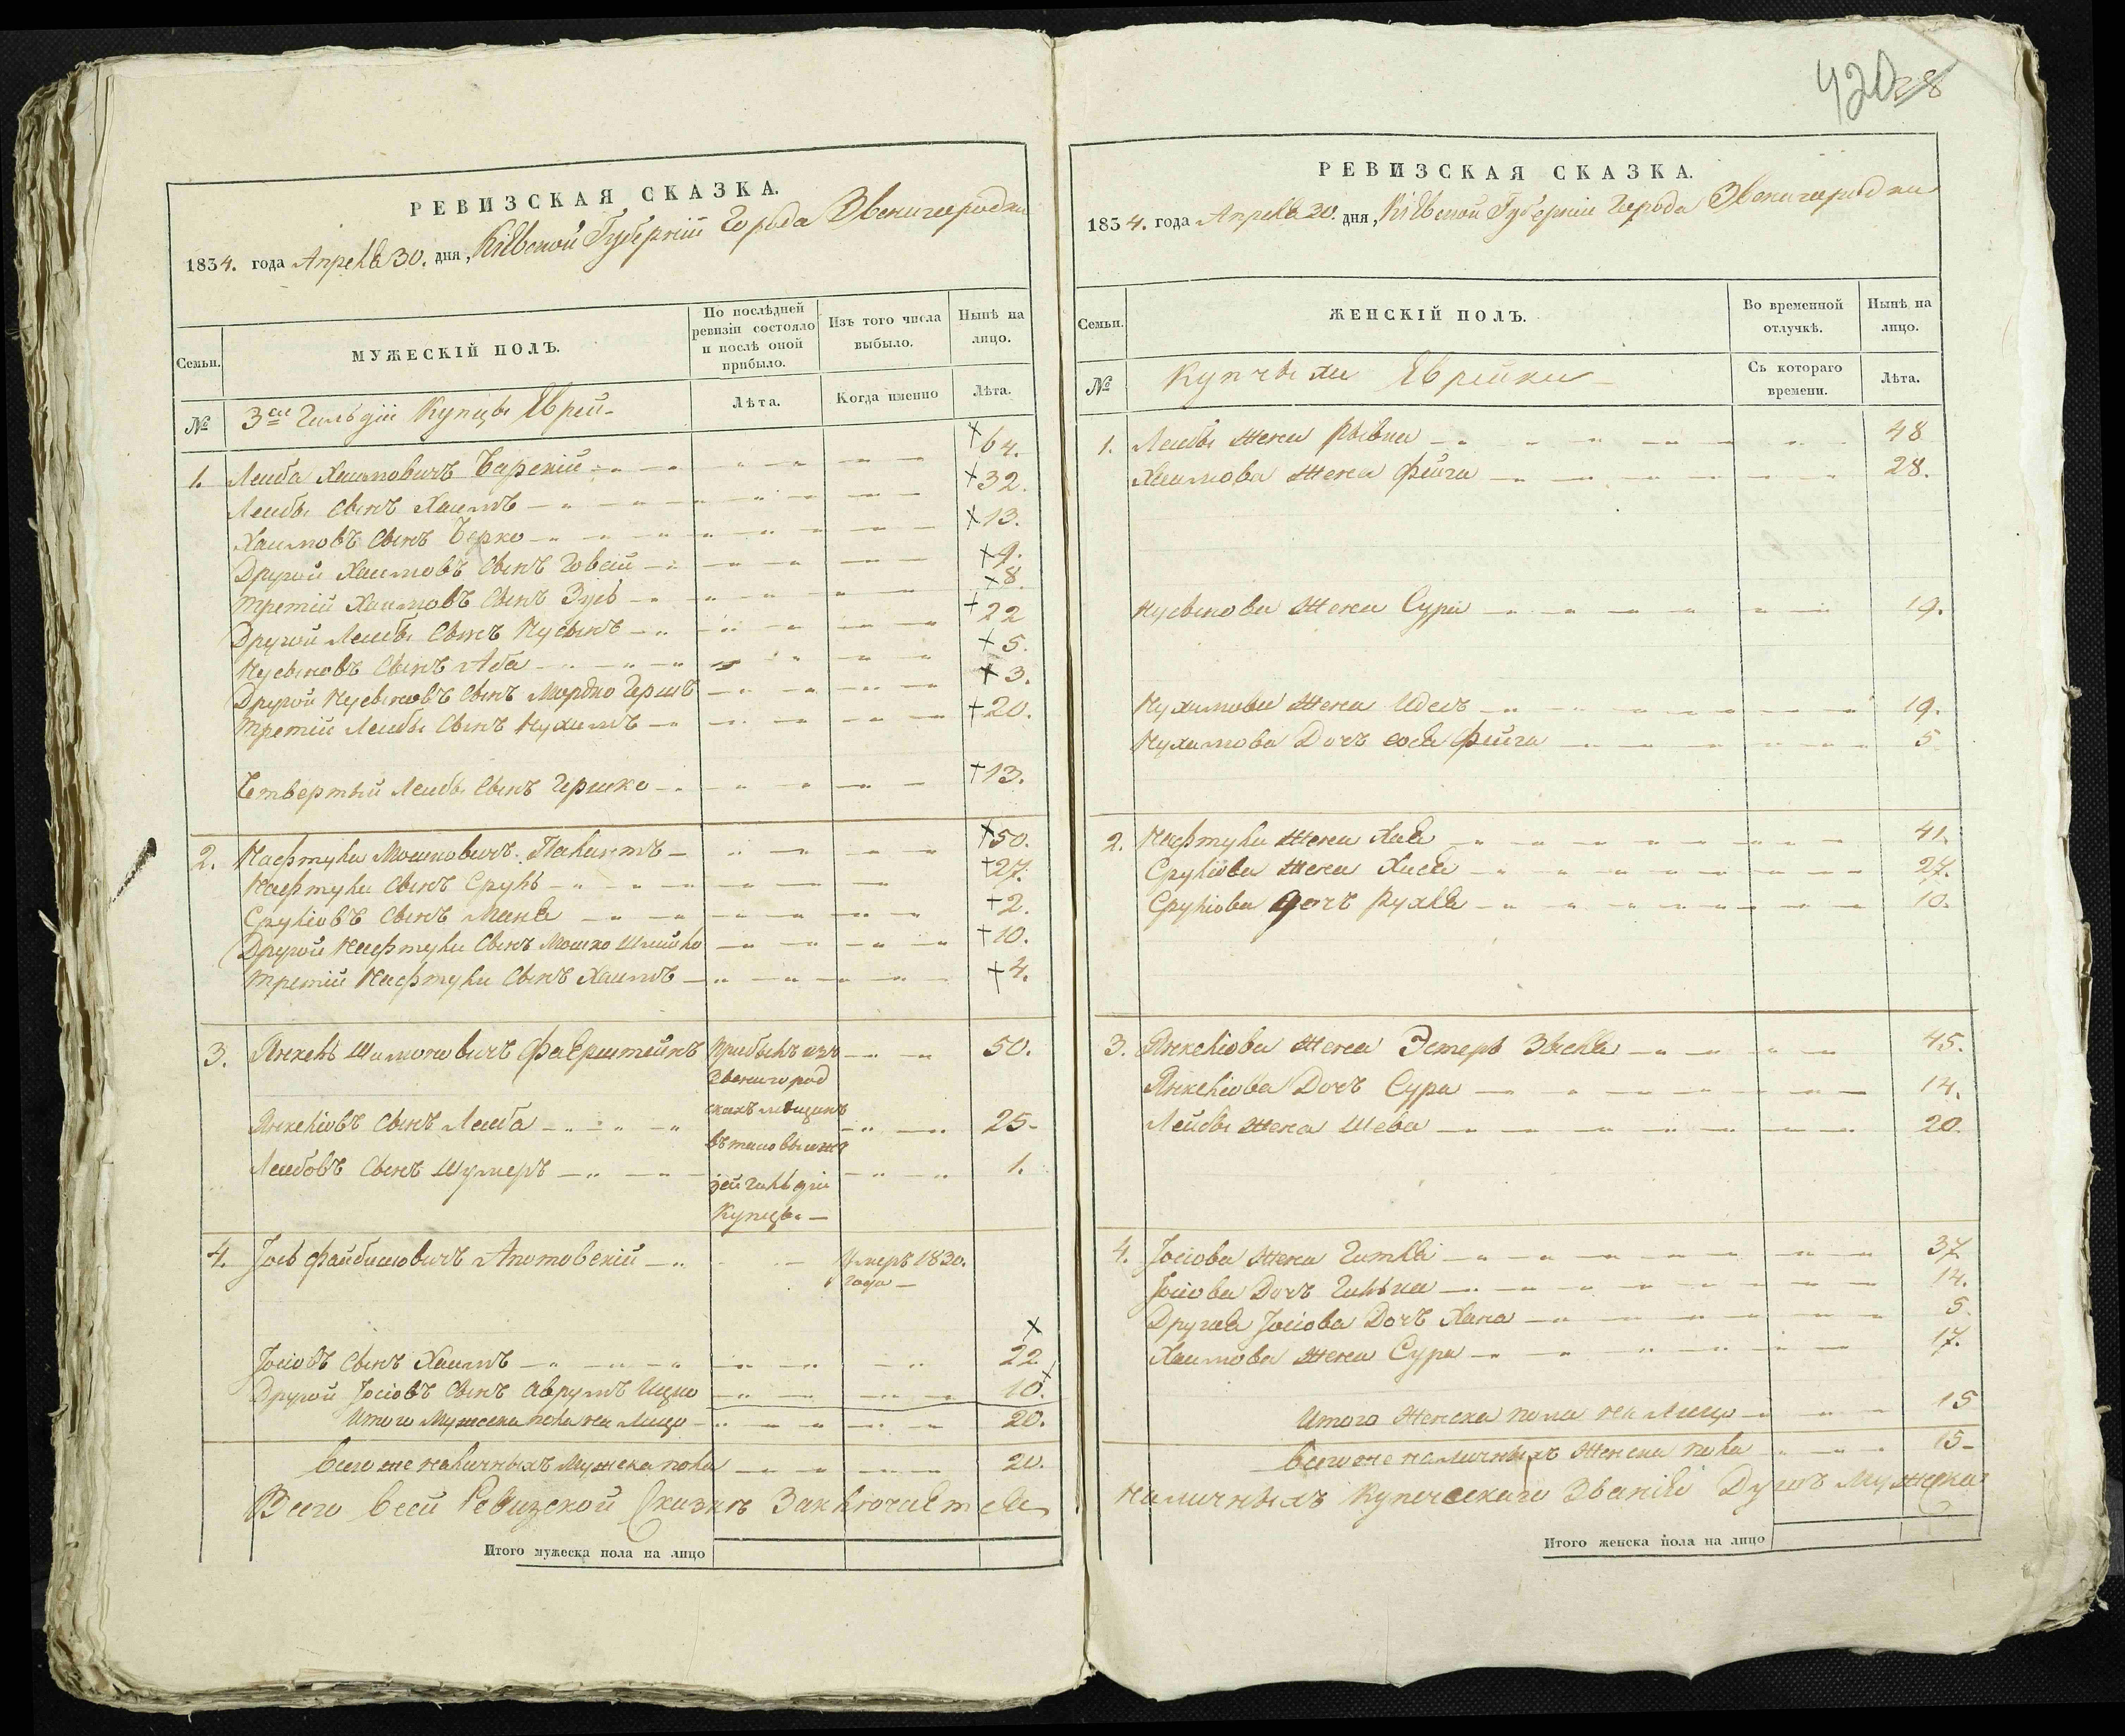 РЕВИЗСКАЯ СКАЗКА.
1834. года Апреля 30. дня, Кіевской Губерніи Города Звенигородки
Семьи.
МУЖЕСКІЙ ПОЛЪ.
По послѣдней ревизіи состояло и послѣ оной прибыло.
Изъ того числа выбыло.
Нынѣ на лицо.
№
3ей Гильдіи Купцы Евреи
Лѣта.
Когда именно
Лѣта.
1. Лейба Хаимовичъ Барскій 64.
Лейбы Сынъ Хаимъ 32.
Хаимовъ Сынъ Берко 13.
Другой Хаимовъ Сынъ 9.
Третій Хаимовъ Сынъ Зусь 8.
Другой Лейбы Сынъ Нусынъ 22
Нусыновъ Сынъ Аба 5.
Другой Нусыновъ Сынъ Мордко Гершъ 3.
Третій Лейбы Сынъ Нухимъ 20.
Четвертый Лейбы Сынъ Гершко 13.
2. Нафтула Мошковичъ 50.
Нафтулы Сынъ Сруль 27.
Сруліовъ Сынъ 2.
Другой Нафтулы Сынъ Мошко Шмуйло 10.
Третій Нафтулы Сынъ Хаимъ 4.
3. Янкель Шимоновичъ Фаерштейнъ Прибылъ изъ 50.
Звенигород
скихъ мещанъ
Янкеліовъ Сынъ Лейба 25
Лейбовъ Сынъ Шулимъ 1.
3ей Гильдіи
Купцы
4. Іось Файбишовичъ Апотовскій Умеръ 1830.
года
Іосіовъ Сынъ Хаимъ 22
Другой Іосіовъ Сынъ Аврумъ Ицко 10.
Итого Мужеска пола на Лицо 20.
Всего же наличныхъ Мужеска пола 20.
Всего Всей Ревизской Сказкѣ Заключается
Итого мужеска пола на лицо
420
28
РЕВИЗСКАЯ СКАЗКА.
1834. года Апреля 30. дня, Кіевской Губерніи Города Звенигородки
Семьи.
ЖЕНСКІЙ ПОЛЪ.
Во временной отлучкѣ.
Нынѣ на лицо.
№
Купчихи Еврейки
Съ котораго времени.
Лѣта.
1. Лейбы Жена Рывка 48
Хаимова Жена Фейга 28.
Нусынова Жена Сура 19.
Нухимова Жена Идесъ 19.
Нухимова Дочь Фейга 5
2. Нафтулы Жена Хая 41.
Сруліова Жена Хася 27.
Сруліова Дочь Рухля 10.
3. Янкеліова Жена Эстеръ 45.
Янкеліова Дочь Сура 14.
Лейбы Жена Шева 20.
4. Іосіова Жена Гитля 37
Іосіова Дочь 14.
Другая Іосіова Дочь Хана 5.
Хаимова Жена Сура 17.
Итого Женска пола на Лицо 15
Всего же наличныхъ Женска пола 15
Наличныхъ Купеческаго Званія Душъ Мужеска
Итого женска пола на лицо